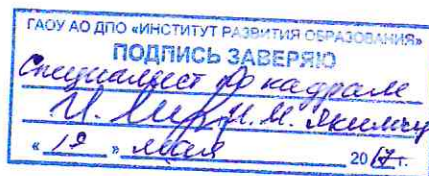 ГАОУ АО ДПО «ИНСТИТУТ РАЗВИТИЯ ОБРАЗОВАНИЯ»
ПОДПИСЬ ЗАВЕРЯЮ
Специалист по кадрам
И. М. Якимчу
« 19 » мая 2017 г.